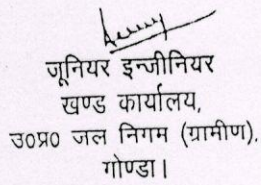 जूनियर इन्जीनियर
खण्ड कार्यालय,
उ०प्र० जल निगम (ग्रामीण),
गोण्डा।